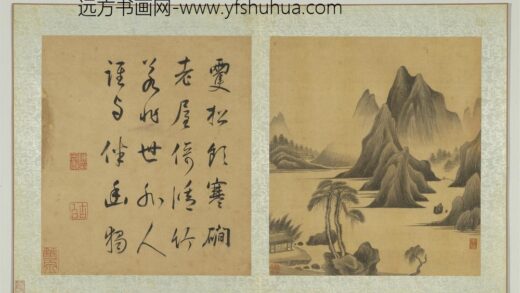 远方书画网-www.yfshuhua.com
松寒磵
老屋倚清竹
若非世外人
誰与伴幽獨